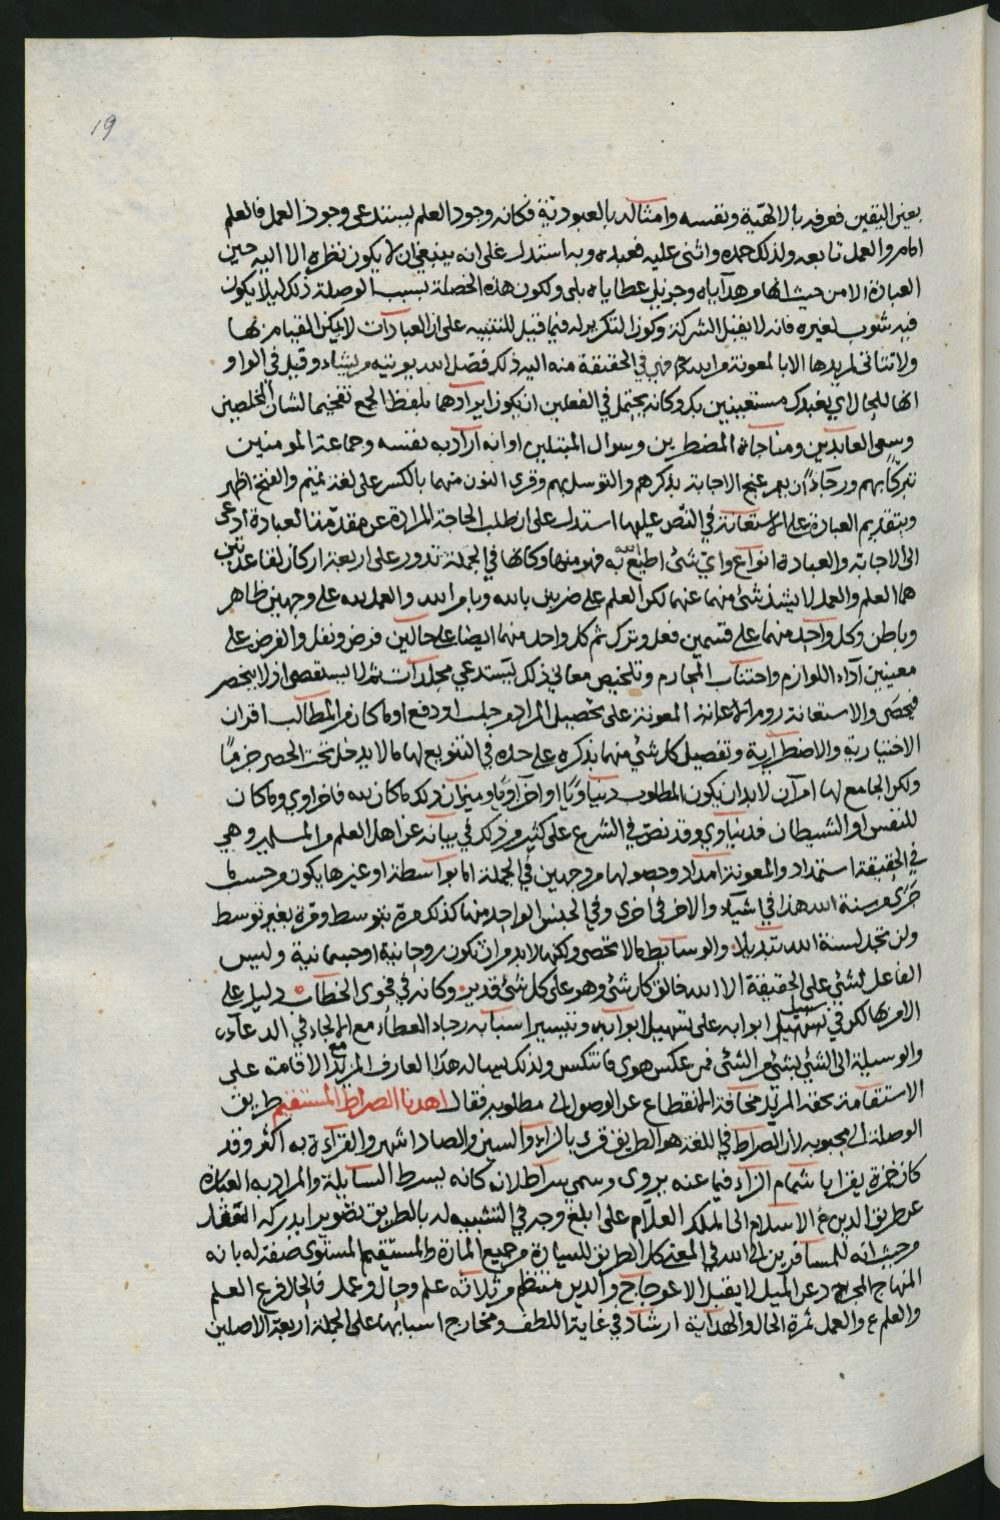 19
بعين اليقين فعرفه بالالهية ونفسه وامثاله بالعبودية فكانه وجود العلم يستدعى وجود العمل فالعلم
امام والعمل تابعه ولذلك حمده واثنى عليه فعبده وبه استدل على انه ينبغي ان لا يكون نظره الا اليه حين
العبادة لا من حيث انها من هداياه وجزيل عطاياه بلى ولكون هذه الخصلة بسبب الوصلة ذلك ليلا يكون
فيه شوب لغيره فانه لا يقبل الشركة وكون التكرير له فيما قيل للتنبيه على ان العبادات لا يمكن القيام بها
ولا تتاتى لمريدها الا بالمعونة فهي في الحقيقة منه اليه ذلك فضل الله يوتيه من يشاء وقيل في الواو
انها للحال اي نعبدك مستعينين بك وكانه يحتمل في الفعلين ان يكون ايرادهما بلفظ الجمع تفخيما لشان المخلصين
وسعي العابدين ومناجاة المضطرين وسوال المبتلين او انه اراد به نفسه وجماعة المومنين
تبركا بهم ورجاء ان بهم عنج الاجابة بذكرهم والتوسل بهم وقرى النون منهما بالكسر على لغة تميم والفتح اظهر
وبتقديم العبادة على الاستعانة في النص عليهما استدل على ان طلب الحاجة المرادة عن مقدمة العبادة ادعى
الى الاجابة والعبادة انواع واي شئ اطيع الله به فهو منها وكانها في الجملة تدور على اربعة اركان لقاعدتين
هما العلم والعمل لا يشذ شئ منها عنهما لكن العلم على ضربين بالله وبامر الله والعمل لله على وجهين ظاهر
وباطن وكل واحد منهما على قسمين فعل وترك ثم كل واحد منهما ايضا على حالين فرض ونفل والفرض على
معنيين اداء اللوازم واجتناب المحارم وتلخيص معاني ذلك يستدعي مجلدات ثم لا يستقصى اذ لا ينحصر
فيحصى والاستعانة روم الاعانة المعونة على تحصيل المراد من جلب او دفع او ما كان من المطالب اقران
الاختيارية والاضطرارية وتفصيل كل شئ منهما بذكره على حده في التنويع لها مما لا يدخل تحت الحصر جزما
ولكن الجامع لها امران لابد ان يكون المطلوب دنياويا او اخراويا وميزان ذلك ما كان لله فاخراوي وما كان
للنفس او الشيطان فدنياوي وقد نص في الشرع على كثير من ذلك في بيانه عن اهل العلم وهي
في الحقيقة استمداد والمعونة امداد وحصولها من وجهين في الجملة اما بواسطة او غيرها يكون من حسب ما
جرى من سنة الله هذا في اشياء والاخر في اخرى وفي الجنس الواحد منها كذلك مرة بتوسط ومرة بغير توسط
ولن تجد لسنة الله تبديلا والوسايط مما لا تحصى ولكنها لابد من ان تكون روحانية او جسمانية وليس
الفاعل لشئ على الحقيقة الا الله خالق كل شئ وهو على كل شئ قدير وكانه في فحوى الخطاب دليل على
الامر بها لكن في تسهيل ابوابه على تسهيل ابوابه وتيسير اسبابه رجاء العطاء مع الالجاء في الدعاء
والوسيلة الى الشئ بشئ من الشئ فمن عكس هوى فانتكس ولذلك بها له هذا العارف المريد مع الاقامة على
الاستقامة بحقه المريد مخافة الانقطاع عن الوصول الى مطلوبه فقال اهدنا الصراط المستقيم طريق
الوصلة الى محبوبه لان الصراط في اللغة هو الطريق قرى بالزاء والسين والصاد اشهر والقراءة به اكثر وقد
كان حمزة يقرا باشمام الزاء فيما عنه يروى وسمي سراطا لانه كانه يسرط السابلة والمراد به العبارة
عن طريق الدين الاسلام الى الملك العلام على ابلغ وجه في التشبيه له بالطريق تصوير ا يدركه العقل
من حيث انه للمسافرين الى الله في المعنى كالطريق للسيارة من جميع المارة والمستقيم المستوى صفة له بانه
المنهاج المجرد عن الميل لا يقبل الاعوجاج والدين منتظم من ثلاثة علم وحال وعمل فالحال فرع العلم
والعلم ع والعمل ثمرة الحال والهداية ارشاد في غاية اللطف ومخارج اسبابها على الجملة اربعة الاصلين